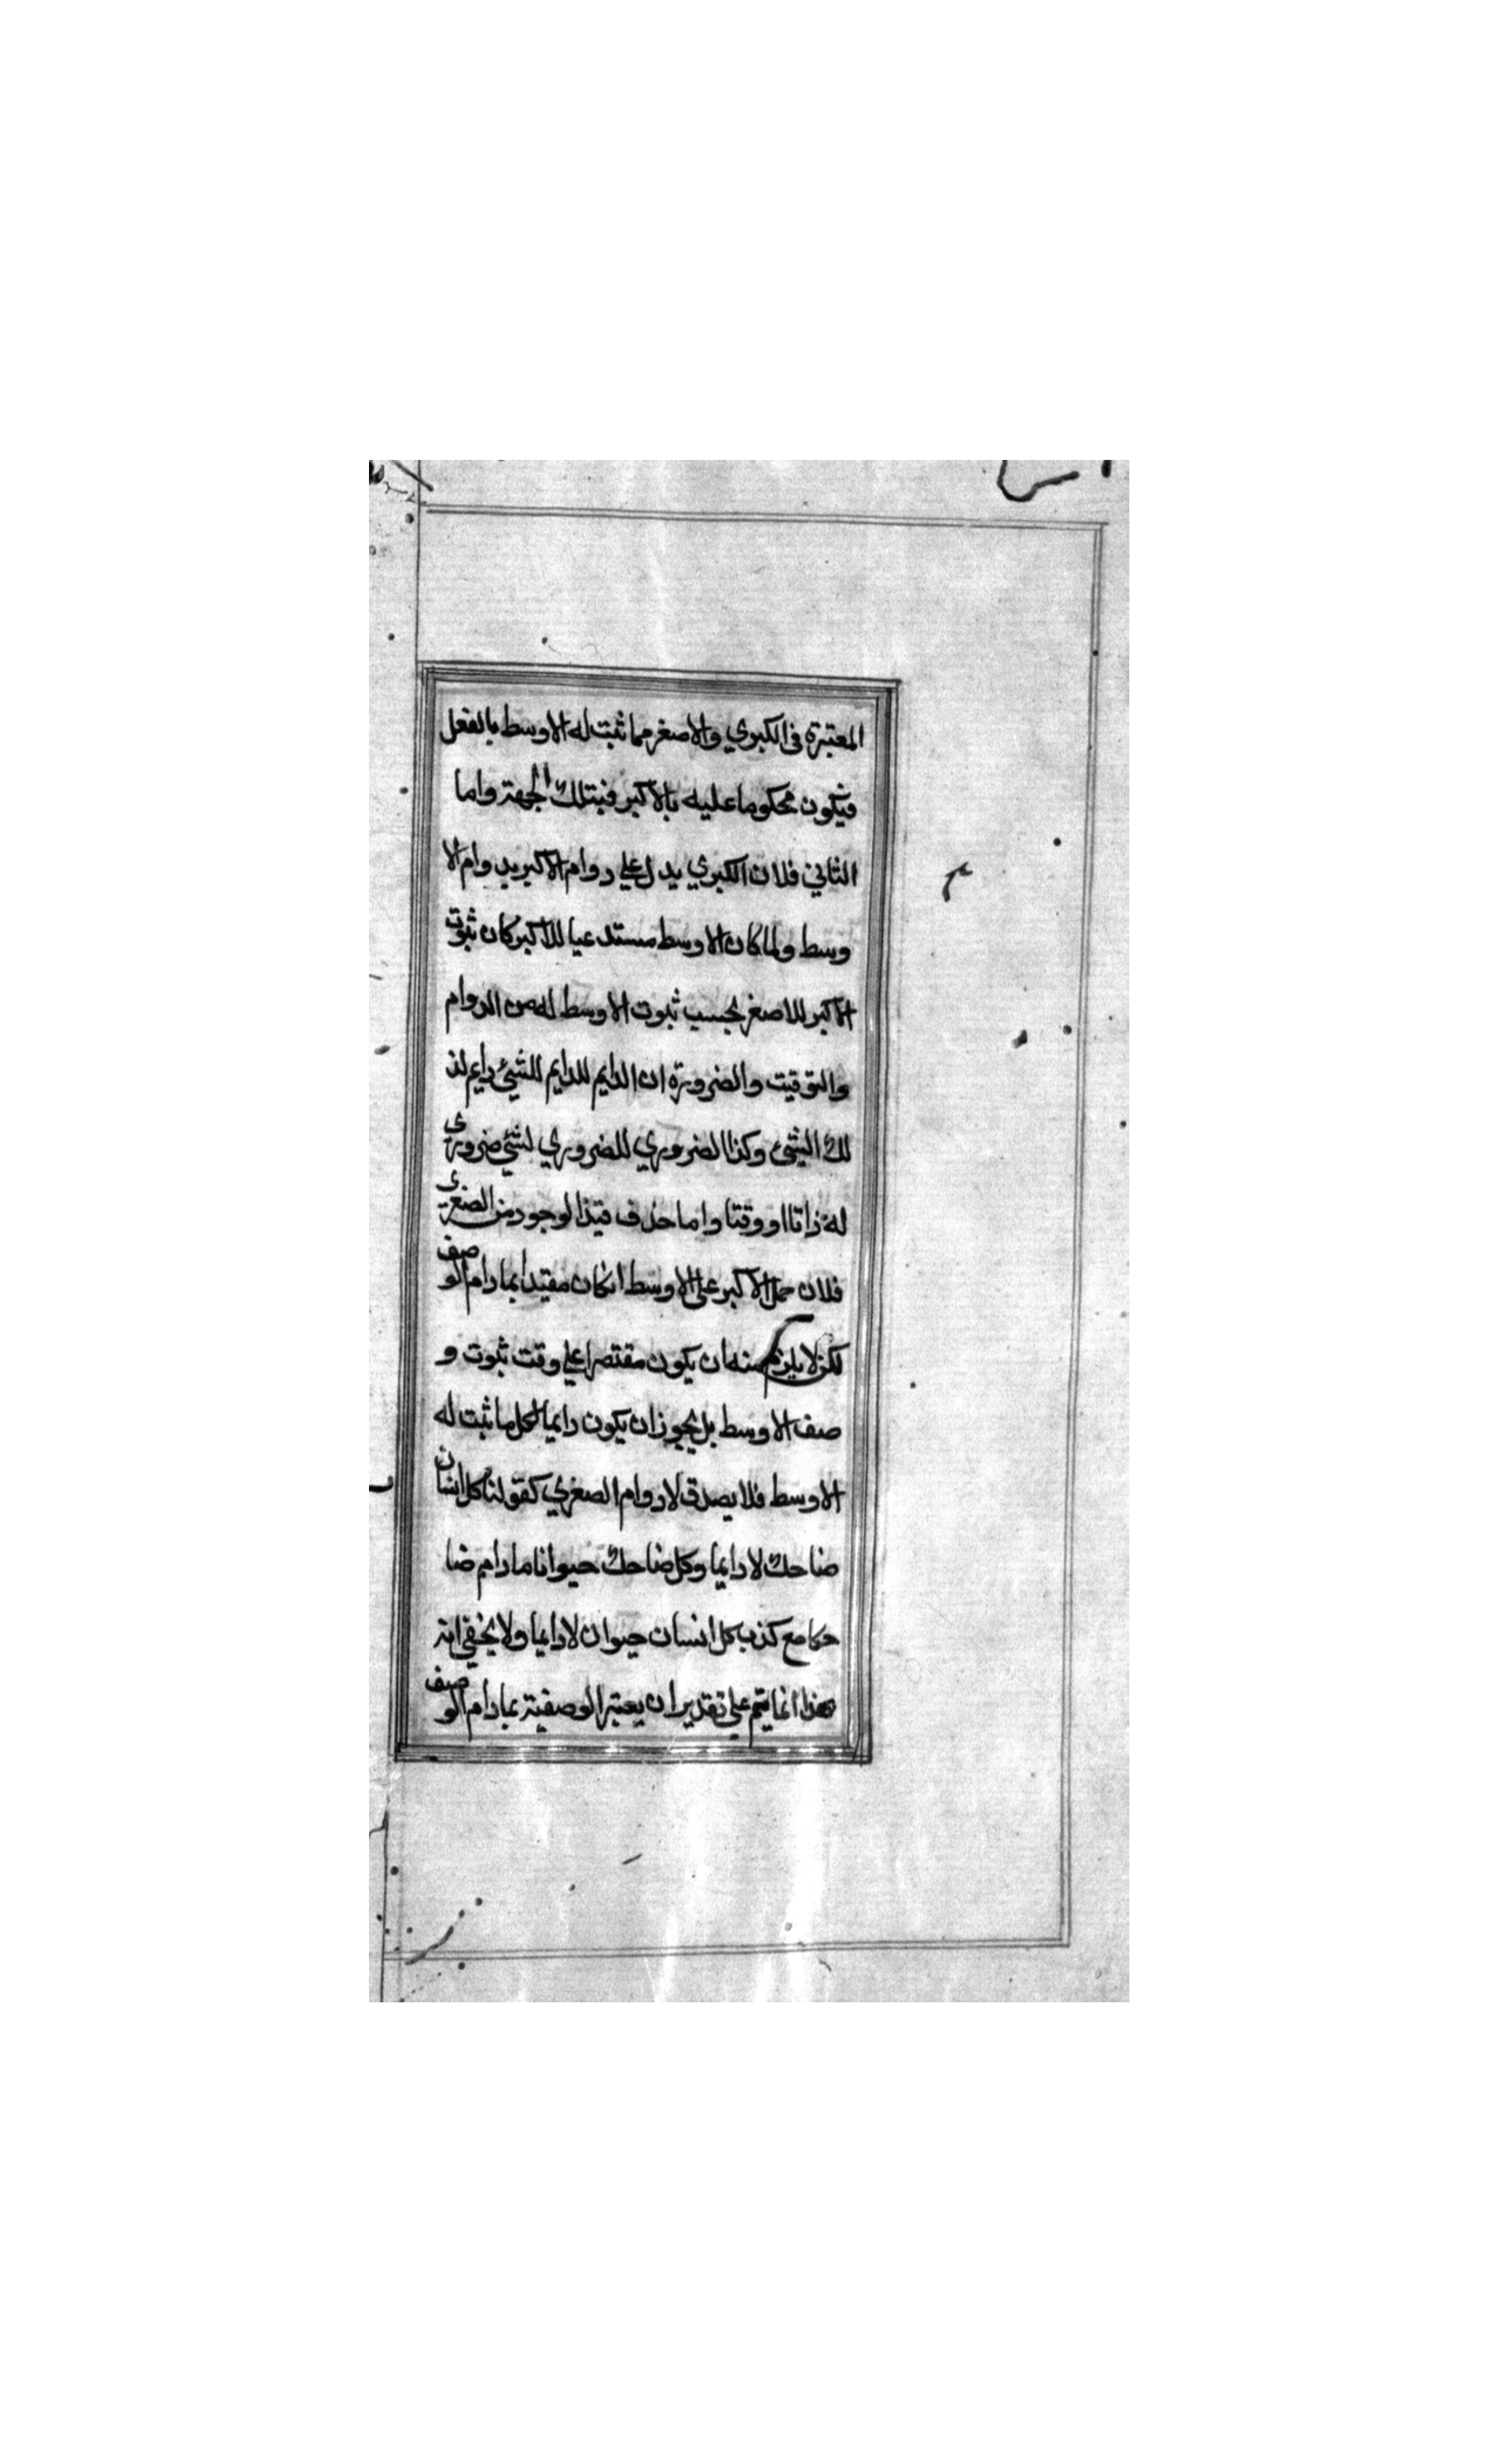 المعتبرة فى الكبوي والاصغر مما ثبت له الاوسط بالفعل
فيكون محكوما عليه بالاكبر فبتلك الجهة واما
الثاني فلان الكبري يدل علي دوام الاكبر بدوام الا
وسط ولما كان الاوسط مستدعيا للاكبر كان ثبوت
الاكبر للاصغر بحسب ثبوت الاوسط له من الدوام
والتوقيت والضرورة ان الدايم للدايم للشيئ دايم لذ
لك الشيئ وكذا الضروري للضروري لشيئ ضروري
له ذاتا او وقتا واما حذف قيد الوجود من الصغري
فلان حمل الاكبر علي الاوسط انكان مقيدا بما دام الوصف
لكن لا يلزم منه ان يكون مقتصرا علي وقت ثبوت و
صف الاوسط بل يجوز ان يكون دايما لكل ما ثبت له
الاوسط فلا يصدق لادوام الصغري كقولنا كل انسان
ضاحك لا دايما وكل ضاحك حيوانا مادام ضا
حكا مع كذب كل انسان حيوان لا دايما ولا يخفي انه
هذا انما يتم علي تقدير ان يعتبر الوصفية بما دام الوصف